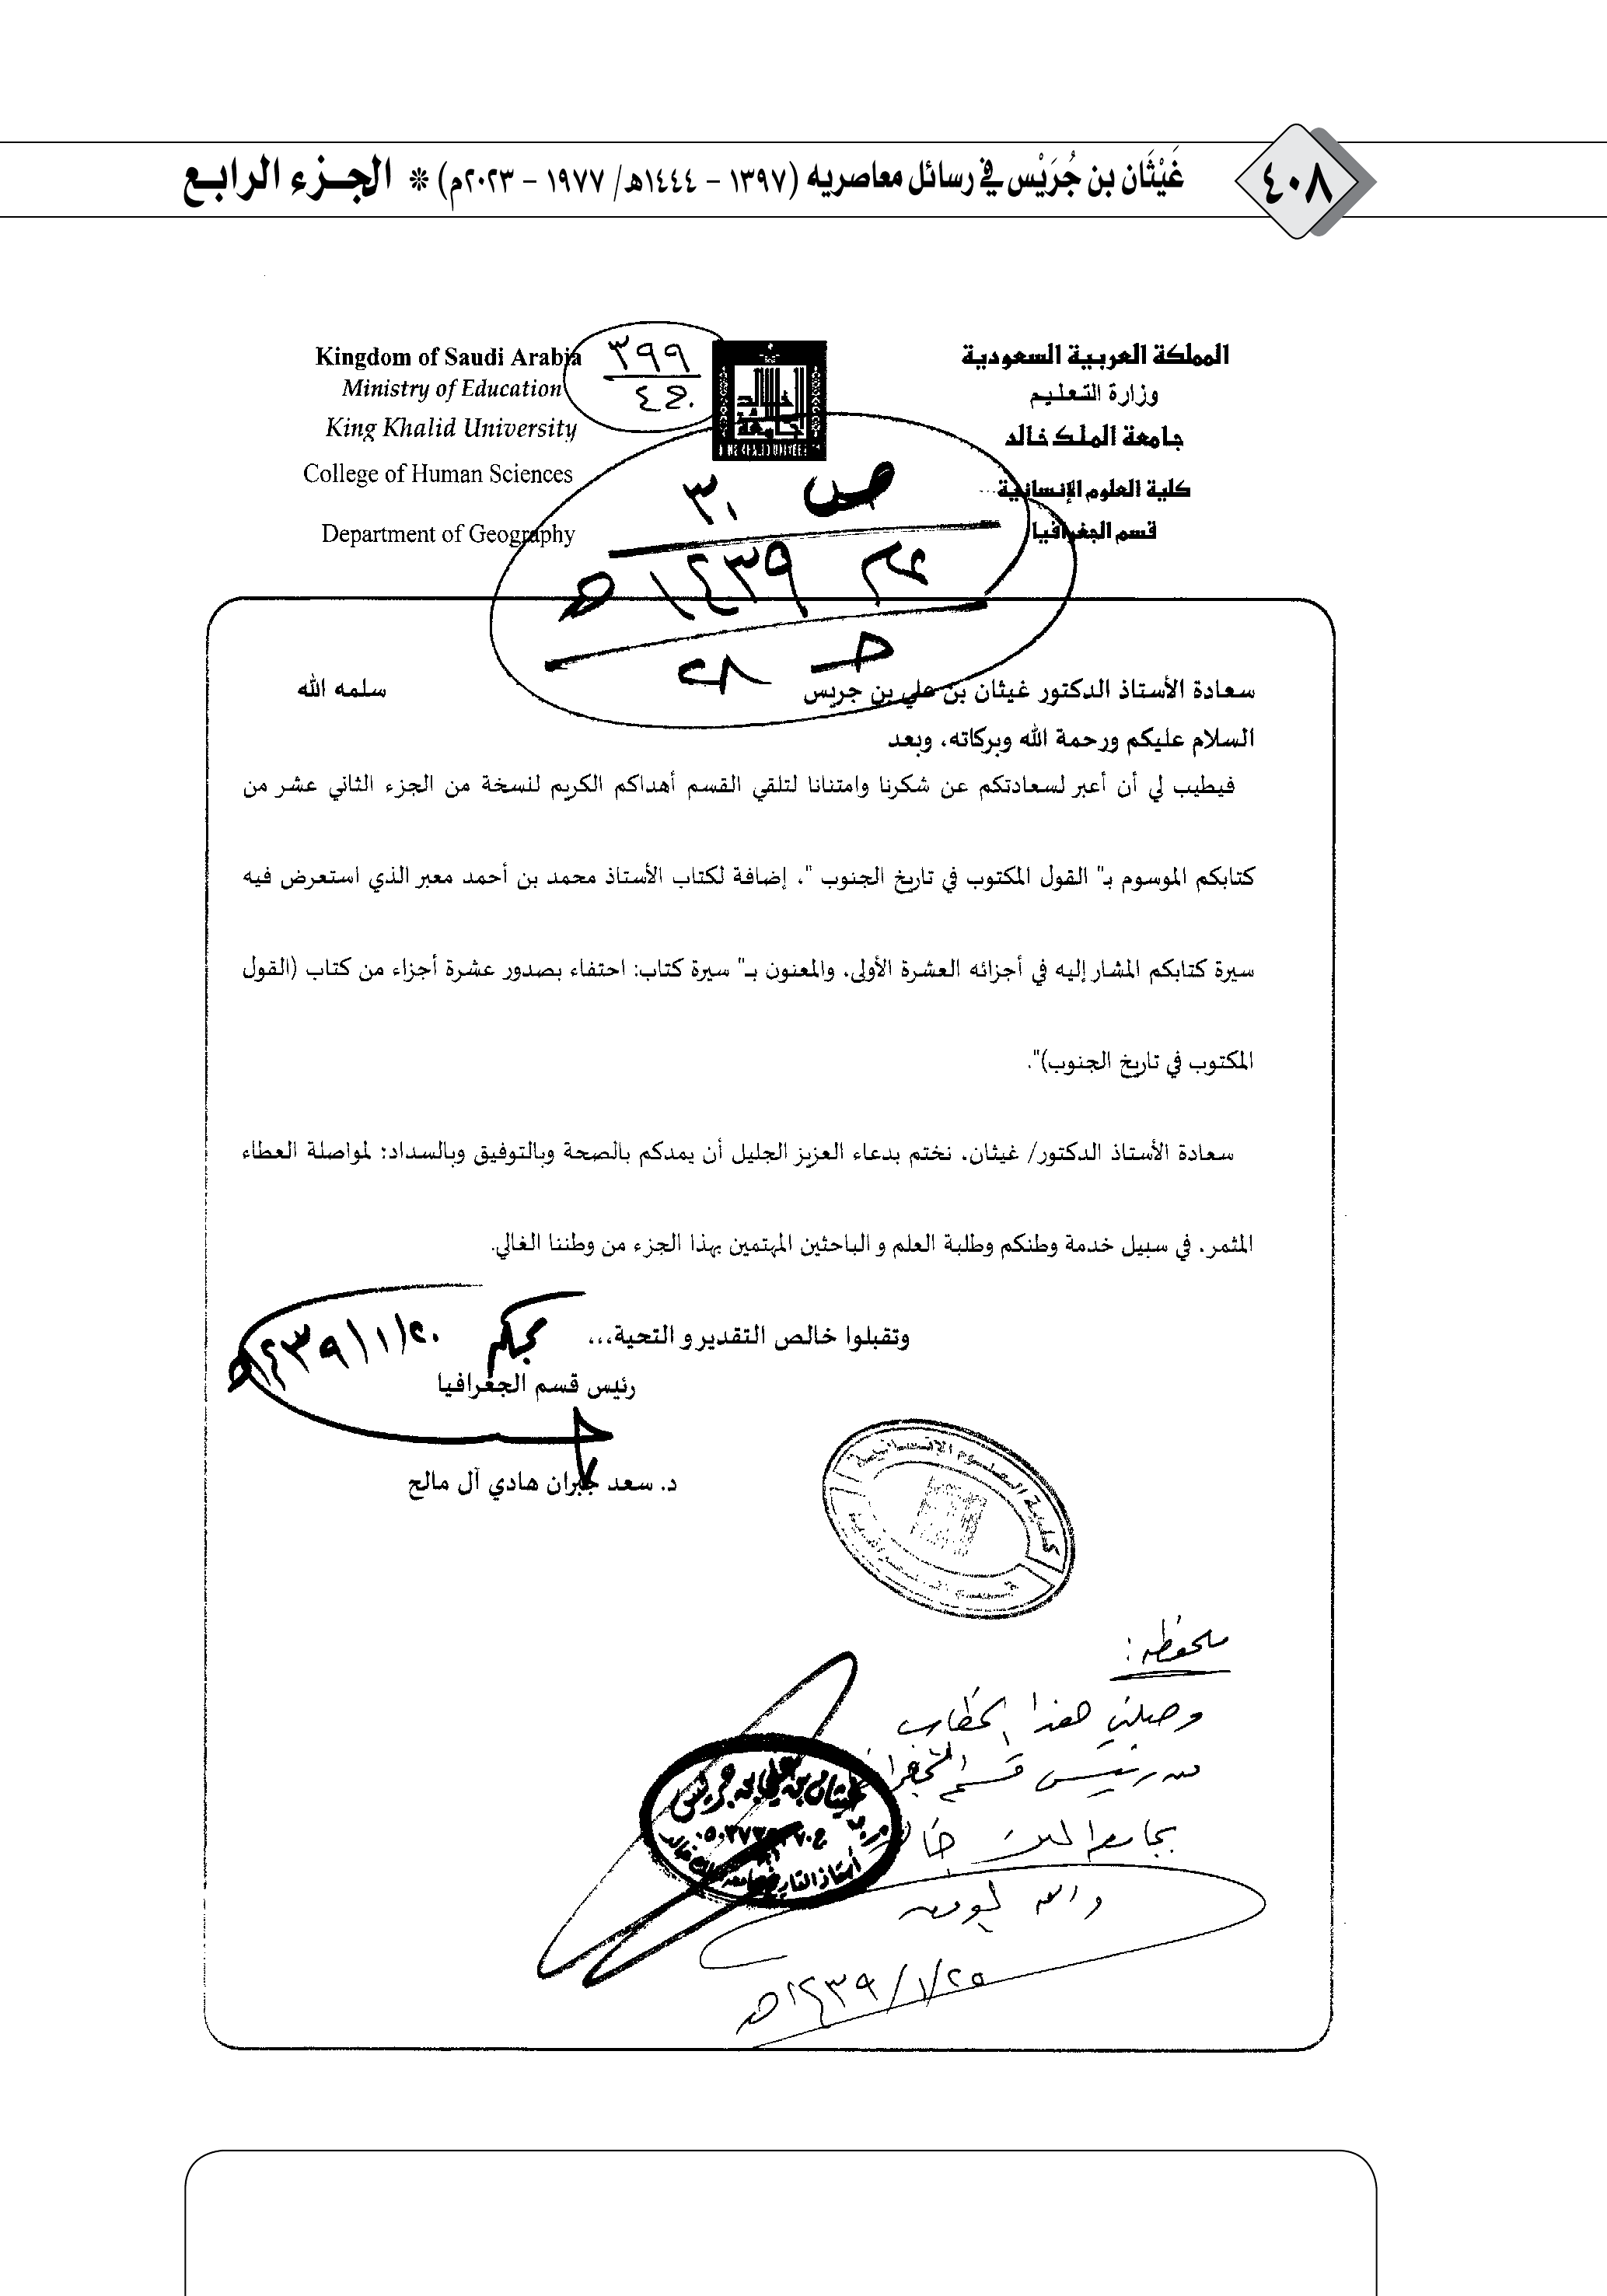 ٤٠٨
غَيْثَان بن جُرَيْس في رسائل معاصريه (١٣٩٧ - ١٤٤٤هـ/ ١٩٧٧ - ٢٠٢٣م) * الجزء الرابع
المملكة العربية السعودية
وزارة التعليم
جامعة الملك خالد
كلية العلوم الإنسانية
قسم الجغرافيا
Kingdom of Saudi Arabia
Ministry of Education
King Khalid University
College of Human Sciences
Department of Geography
٣٩٩
ص ٣٠
١٤٣٩ هـ
سعادة الأستاذ الدكتور غيثان بن علي بن جريس سلمه الله
السلام عليكم ورحمة الله وبركاته، وبعد
فيطيب لي أن أعبر لسعادتكم عن شكرنا وامتنانا لتلقي القسم أهداكم الكريم لنسخة من الجزء الثاني عشر من
كتابكم الموسوم بـ" القول المكتوب في تاريخ الجنوب "، إضافة لكتاب الأستاذ محمد بن أحمد معبر الذي استعرض فيه
سيرة كتابكم المشار إليه في أجزائه العشرة الأولى، والمعنون بـ" سيرة كتاب: احتفاء بصدور عشرة أجزاء من كتاب (القول
المكتوب في تاريخ الجنوب)".
سعادة الأستاذ الدكتور/ غيثان، نختم بدعاء العزيز الجليل أن يمدكم بالصحة وبالتوفيق وبالسداد؛ لمواصلة العطاء
المثمر، في سبيل خدمة وطنكم وطلبة العلم و الباحثين المهتمين بهذا الجزء من وطننا الغالي.
وتقبلوا خالص التقدير و التحية...
٢٠/١/١٤٣٩هـ
رئيس قسم الجغرافيا
د. سعد جبران هادي آل مالح
كلية العلوم الإنسانية
ملحوظة:
وصلني هذا الخطاب
من رئيس قسم الجغرافيا
بجامعة الملك خالد
والله
غيثان بن علي بن جريس
٢٥/١/١٤٣٩هـ